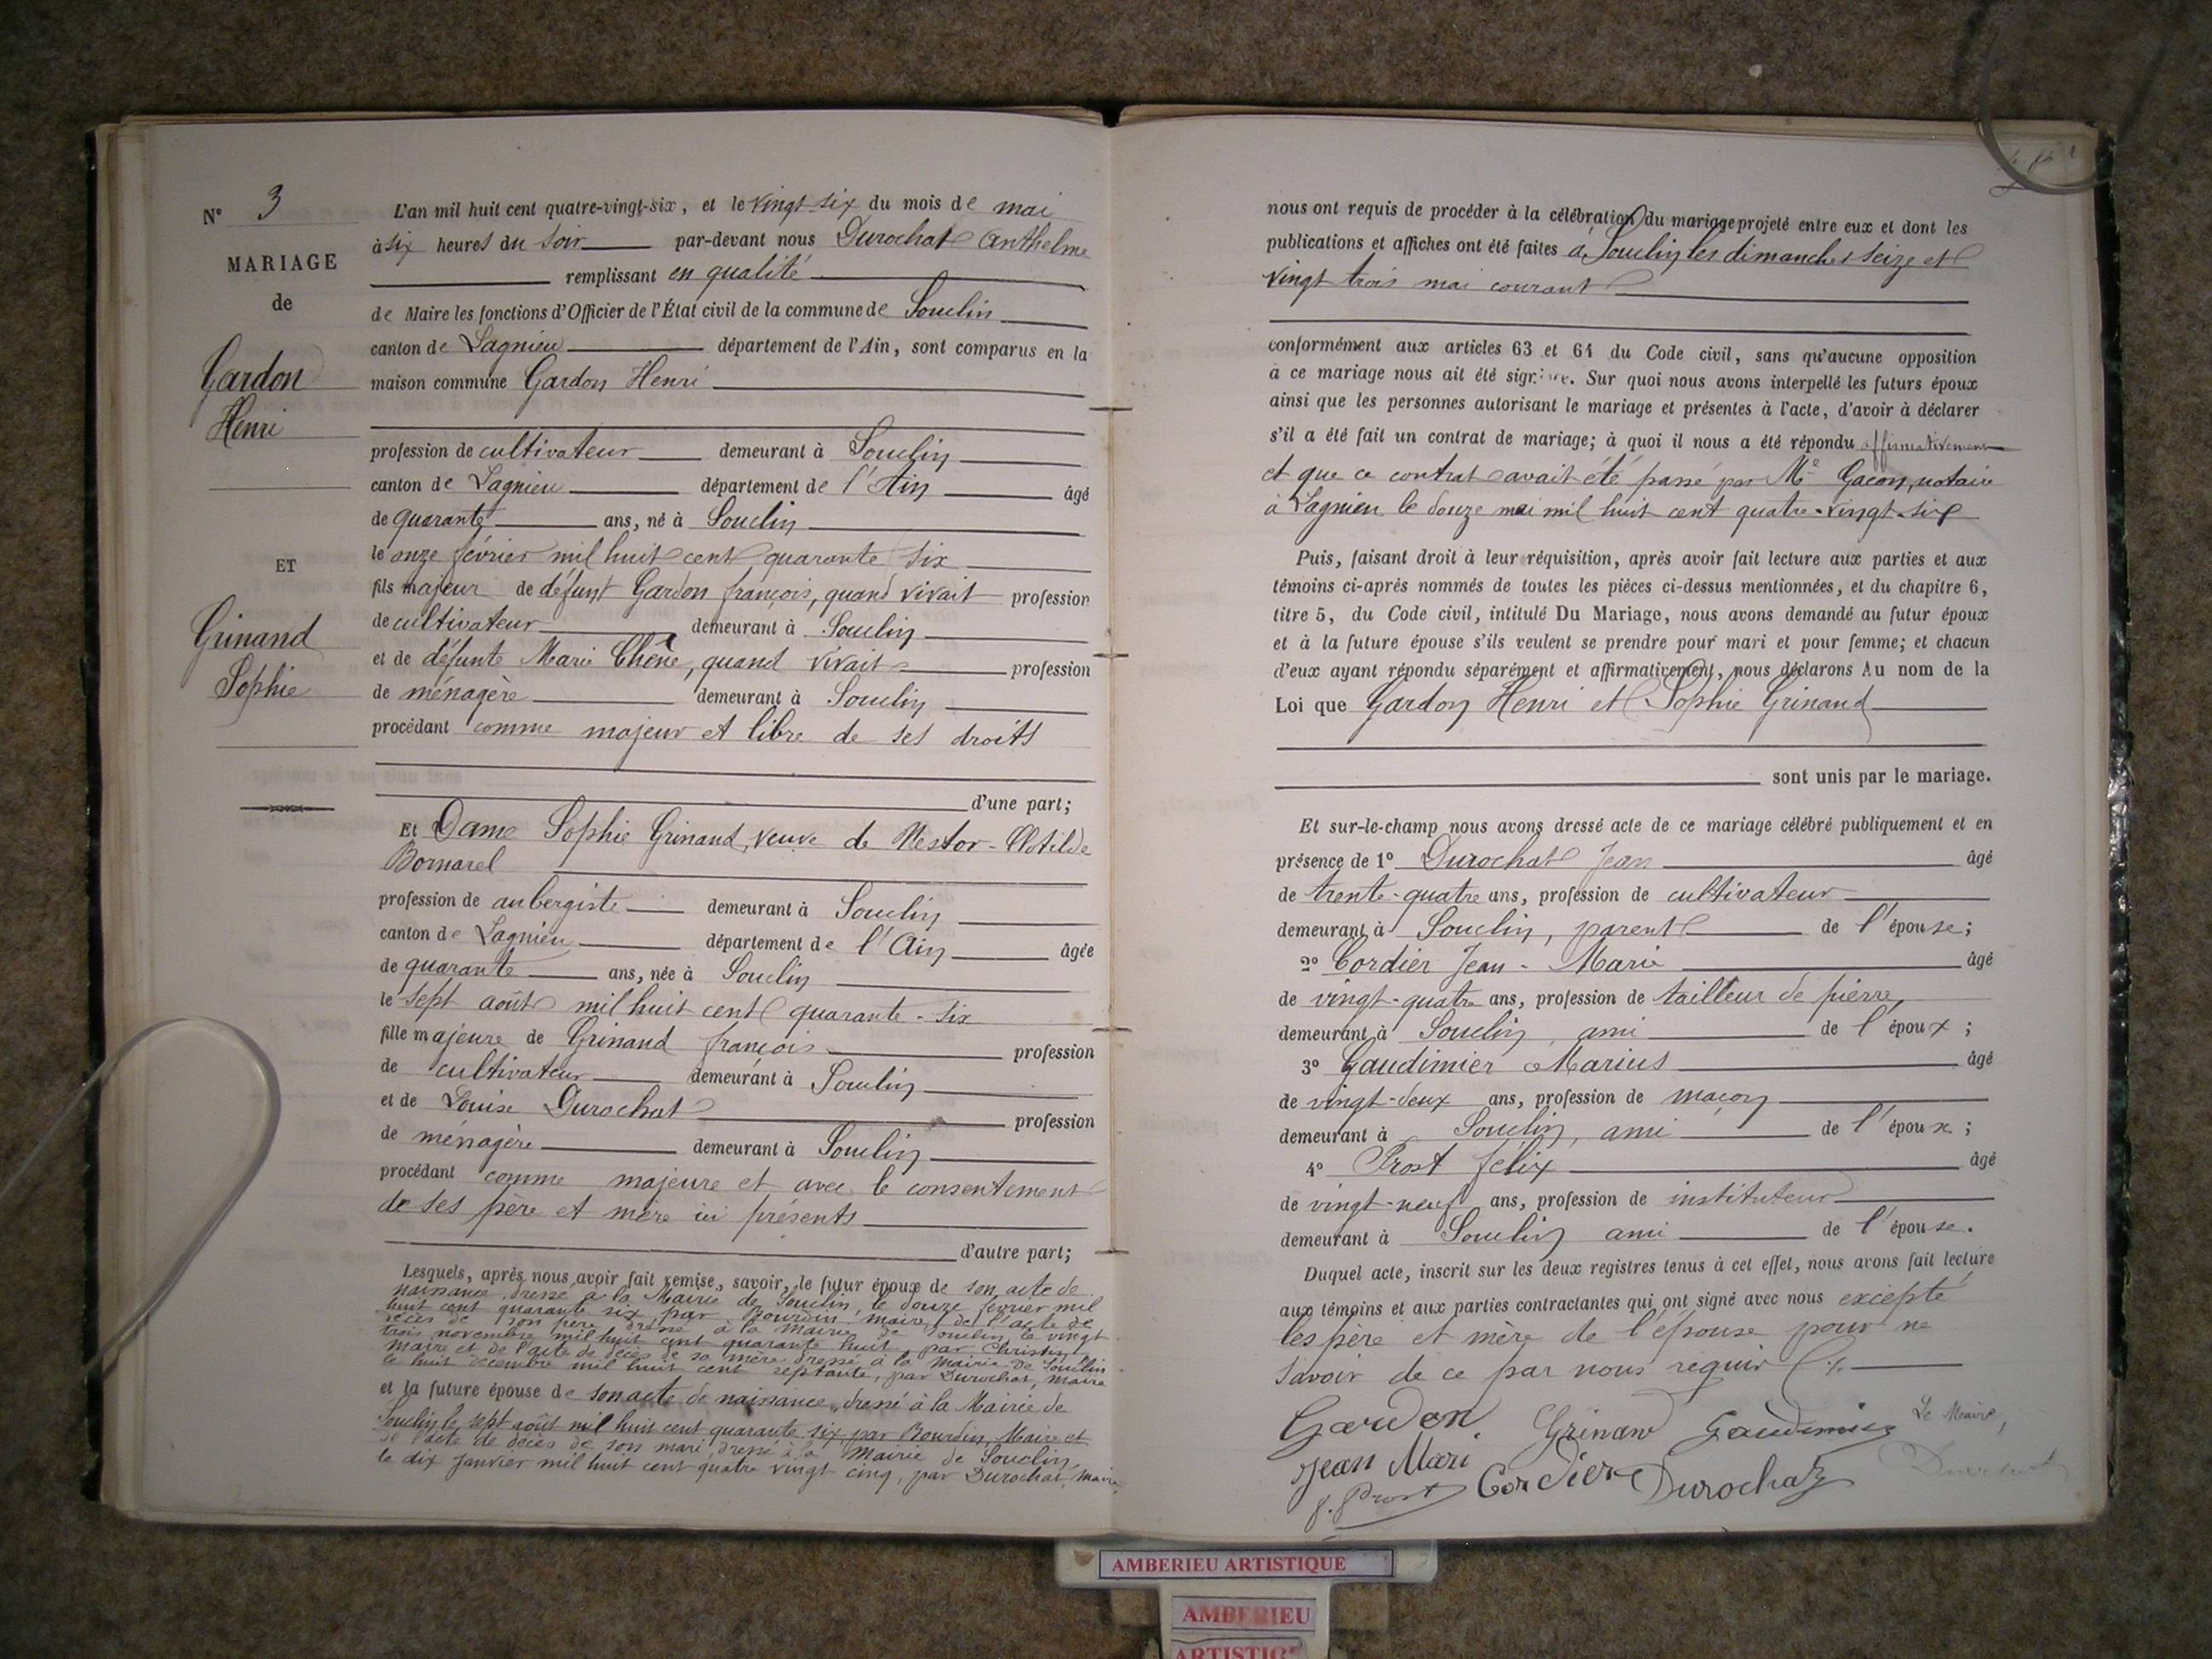 N° 3
MARIAGE
de
Gardon
Henri
ET
Grinand
Sophie
L'an mil huit cent quatre-vingt-six, et le vingt-six du mois de mai
à six heures du soir par-devant nous Durochat Anthelme
remplissant en qualité
de Maire les fonctions d'Officier de l'État civil de la commune de Souclin
canton de Lagnieu département de l'Ain, sont comparus en la
maison commune Gardon Henri
profession de cultivateur demeurant à Souclin
canton de Lagnieu département de l'Ain âgé
de quarante ans, né à Souclin
le onze février mil huit cent quarante six
fils majeur de défunt Gardon françois, quand vivait profession
de cultivateur demeurant à Souclin
et de défunte Marie Chêne, quand vivait profession
de ménagère demeurant à Souclin
procédant comme majeur et libre de ses droits
d'une part;
Et Dame Sophie Grinand, veuve de Nestor-Clotilde
Bornarel
profession de aubergiste demeurant à Souclin
canton de Lagnieu département de l'Ain âgée
de quarante ans, née à Souclin
le sept août mil huit cent quarante-six
fille majeure de Grinand françois profession
de cultivateur demeurant à Souclin
et de Louise Durochat profession
de ménagère demeurant à Souclin
procédant comme majeure et avec le consentement
de ses père et mère ici présents
d'autre part;
Lesquels, après nous avoir fait remise, savoir, le futur époux de son acte de
naissance, dressé à la Mairie de Souclin, le douze février mil
huit cent quarante six par Bourdin maire, de l'acte de
décès de son père dressé à la mairie de Souclin le vingt
trois novembre mil huit cent quarante huit, par Christin
maire et de l'acte de décès de sa mère dressé à la Mairie de Souclin
le huit décembre mil huit cent septante, par Durochat, maire
et la future épouse de son acte de naissance, dressé à la Mairie de
Souclin le sept août mil huit cent quarante six par Bourdin, Maire et
de l'acte de décès de son mari, dressé à la Mairie de Souclin,
le dix janvier mil huit cent quatre vingt cinq, par Durochat, maire
nous ont requis de procéder à la célébration du mariage projeté entre eux et dont les
publications et affiches ont été faites à Souclin les dimanches seize et
vingt trois mai courant
conformément aux articles 63 et 64 du Code civil, sans qu'aucune opposition
à ce mariage nous ait été signifiée. Sur quoi nous avons interpellé les futurs époux
ainsi que les personnes autorisant le mariage et présentes à l'acte, d'avoir à déclarer
s'il a été fait un contrat de mariage; à quoi il nous a été répondu affirmativement
et que ce contrat avait été passé par Me Gacon, notaire
à Lagnieu le douze mai mil huit cent quatre-vingt-six
Puis, faisant droit à leur réquisition, après avoir fait lecture aux parties et aux
témoins ci-après nommés de toutes les pièces ci-dessus mentionnées, et du chapitre 6,
titre 5, du Code civil, intitulé Du Mariage, nous avons demandé au futur époux
et à la future épouse s'ils veulent se prendre pour mari et pour femme; et chacun
d'eux ayant répondu séparément et affirmativement, nous déclarons Au nom de la
Loi que Gardon Henri et Sophie Grinand
sont unis par le mariage.
Et sur-le-champ nous avons dressé acte de ce mariage célébré publiquement et en
présence de 1° Durochat Jean âgé
de trente-quatre ans, profession de cultivateur
demeurant à Souclin, parent de l'épouse;
2° Cordier Jean-Marie âgé
de vingt-quatre ans, profession de tailleur de pierre,
demeurant à Souclin, ami de l'époux;
3° Gaudimier Marius âgé
de vingt-deux ans, profession de maçon
demeurant à Souclin, ami de l'époux;
4° Prost félix âgé
de vingt-neuf ans, profession de instituteur
demeurant à Souclin ami de l'épouse.
Duquel acte, inscrit sur les deux registres tenus à cet effet, nous avons fait lecture
aux témoins et aux parties contractantes qui ont signé avec nous excepté
les père et mère de l'épouse pour ne
savoir de ce par nous requis
Gardon Grinand Gaudimier Le Maire,
Jean Mari Cordier Durochat Durochat
f. Prost
AMBERIEU ARTISTIQUE
AMBERIEU
ARTISTIQ